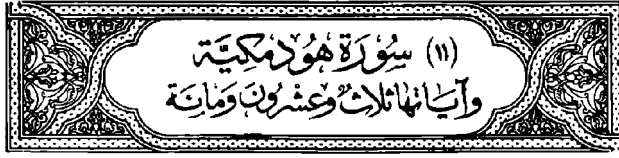 (١١) سُورَة هُود مَكيَّة
وآيَاتهَا ثلاث وعشرون ومائة